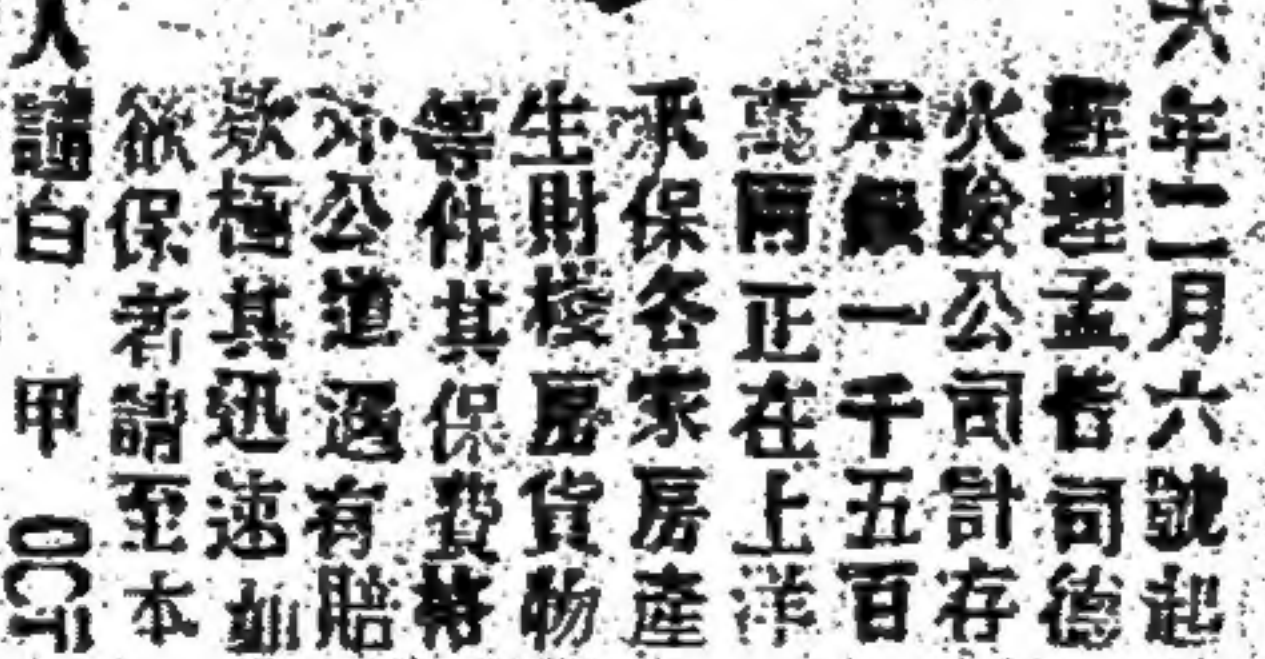 六年二月六號起
經理孟者司德
火險公司計存
本銀一千五百
萬兩正在上洋
承保各家房產
生財棧房貨物
等件其保費格
外公道遇有賠
款極其迅速如
欲保者請至本
人謹白 甲 OCT